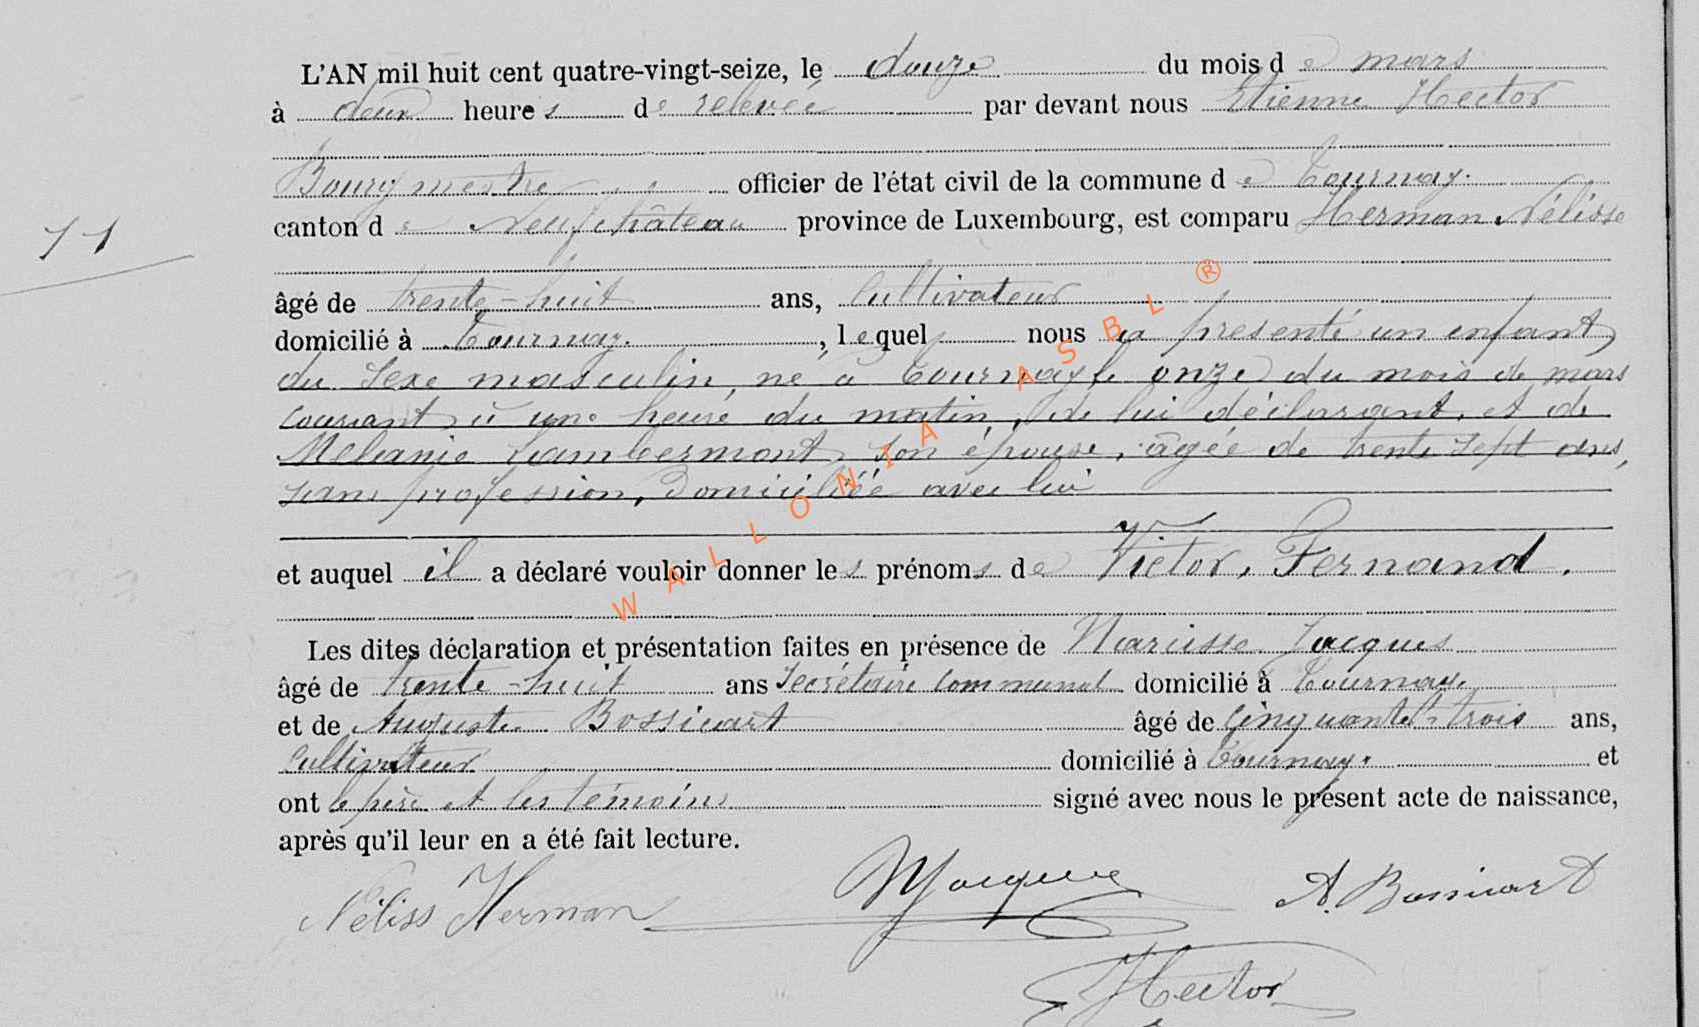 L'AN mil huit cent quatre-vingt-seize, le douze du mois de mars
à deux heures de relevée par devant nous Etienne Hector
Bourgmestre officier de l'état civil de la commune de Tournay.
canton de Neufchâteau province de Luxembourg, est comparu Herman Nélisse
11
âgé de trente-huit ans, Cultivateur
domicilié à Tournay. , lequel nous a présenté un enfant
du sexe masculin, né à Tournay, le onze du mois de mars
courant à une heure du matin, de lui déclarant, et de
Mélanie Lambermont, son épouse, âgée de trente sept ans,
sans profession, domiciliée avec lui
et auquel il a déclaré vouloir donner les prénoms de Victor, Fernand.
Les dites déclaration et présentation faites en présence de Narcisse Jacques
âgé de trente-huit ans Secrétaire communal domicilié à Tournay,
et de Auguste Bossicart âgé de Cinquante-trois ans,
Cultivateur domicilié à Tournay. et
ont le père et les témoins signé avec nous le présent acte de naissance,
après qu'il leur en a été fait lecture.
Néliss Herman NJacques A. Bossicart
Hector
WALLONIA ASBL ®